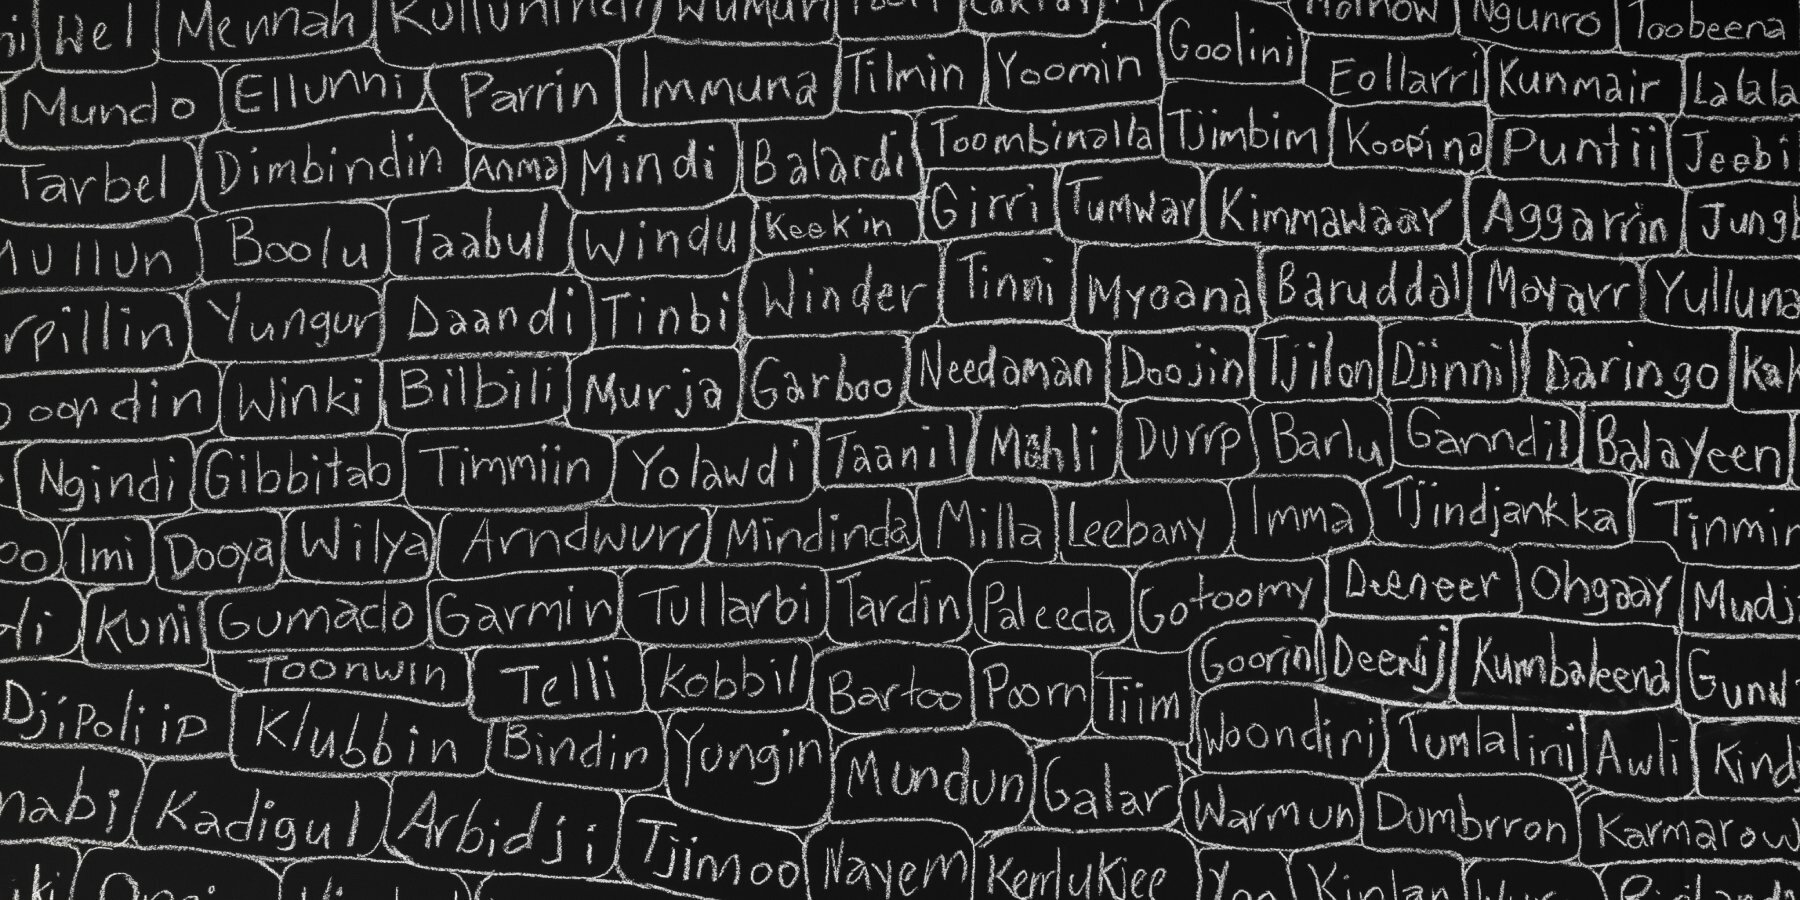 Wel Mennah Ngunro Toobeena
Goolini
Mundo Ellunni Parrin Immuna Tilmin Yoomin Eollarri Kunmair
Tarbel Dimbindin Anma Mindi Balardi Toombinalla Tjimbim Koopina Puntii
Boolu Taabul Windu Keekin Girri Tumwar Kimmawaay Aggarrin
Yungur Daandi Tinbi Winder Tinni Myoana Baruddal Moyarr
Winki Bilbili Murja Garboo Needaman Doojin Tjilon Djinnil Daringo
Ngindi Gibbitab Timmiin Yolawdi Taanil Durrp Barlu Ganndil Balayeen
Imi Dooya Wilya Arndwurr Mindinda Milla Leebany Imma Tjindjankka
Kuni Gumado Garmin Tullarbi Tardin Paleeda Gotoomy Deeneer Ohgaay
Toonwin Telli Kobbil Bartoo Poorn Tiim Goorin Deenij Kumbaleena
Djipoliip Klubbin Bindin Yungin Mundun Galar Woondiri Tumlalini Awli
Kadigul Arbidji Tjimoo Nayem Kerrlukiee Warmun Dumbrron